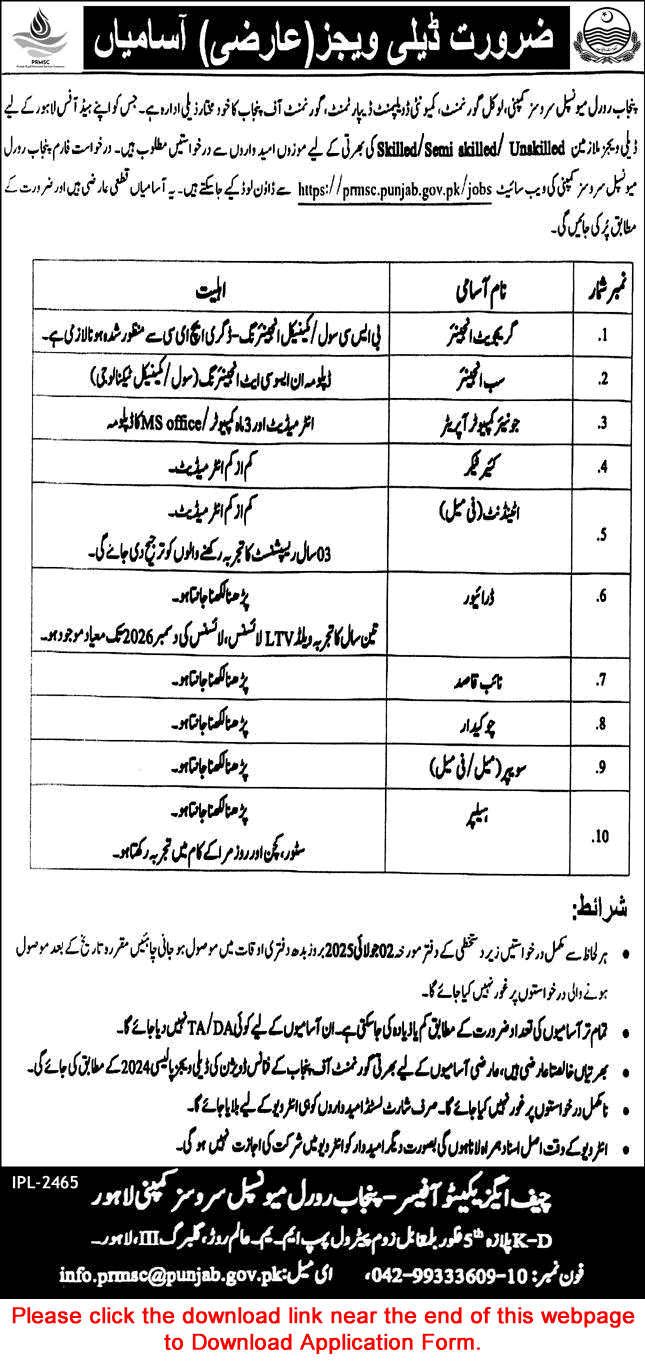 PRMSC
ضرورت ڈیلی ویجز (عارضی) آسامیاں
پنجاب رورل میونسپل سروسز کمپنی، لوکل گورنمنٹ، کمیونٹی ڈویلپمنٹ ڈیپارٹمنٹ، گورنمنٹ آف پنجاب کا خود مختار ذیلی ادارہ ہے۔ جس کو اپنے ہیڈ آفس لاہور کے لیے
ڈیلی ویجز ملازمین Skilled/Semi skilled/ Unskilled کی بھرتی کے لیے موزوں امیدواروں سے درخواستیں مطلوب ہیں۔ درخواست فارم پنجاب رورل
میونسپل سروسز کمپنی کی ویب سائیٹ https://prmsc.punjab.gov.pk/jobs سے ڈاؤن لوڈ کیے جاسکتے ہیں۔ یہ آسامیاں قطعی عارضی ہیں اور ضرورت کے
مطابق پُر کی جائیں گی۔
نمبر شمار نام آسامی اہلیت
1. گریجویٹ انجینئر بی ایس سی سول/ مکینیکل انجینئرنگ - ڈگری ایچ ای سی سے منظور شدہ ہونا لازمی ہے۔
2. سب انجینئر ڈپلومہ ان ایسوسی ایٹ انجینئرنگ (سول/ مکینیکل ٹیکنالوجی)
3. جونیئر کمپیوٹر آپریٹر انٹرمیڈیٹ اور 3 ماہ کمپیوٹر/ MS office کا ڈپلومہ
4. کیئر ٹیکر کم از کم انٹرمیڈیٹ۔
5. اٹینڈنٹ (فی میل) کم از کم انٹرمیڈیٹ۔
03 سال ریسپشنسٹ کا تجربہ رکھنے والوں کو ترجیح دی جائے گی۔
6. ڈرائیور پڑھنا لکھنا جانتا ہو۔
تین سال کا تجربہ ویلڈ LTV لائسنس، لائسنس کی دسمبر 2026 تک معیاد موجود ہو۔
7. نائب قاصد پڑھنا لکھنا جانتا ہو۔
8. چوکیدار پڑھنا لکھنا جانتا ہو۔
9. سویپر (میل/ فی میل) پڑھنا لکھنا جانتا ہو۔
10. ہیلپر پڑھنا لکھنا جانتا ہو۔
سٹور، کچن اور روزمرا کے کام میں تجربہ رکھتا ہو۔
شرائط:
• ہر لحاظ سے مکمل درخواستیں زیر دستخطی کے دفتر مورخہ 02 جولائی 2025 بروز بدھ دفتری اوقات میں موصول ہو جانی چاہئیں مقررہ تاریخ کے بعد موصول
ہونے والی درخواستوں پر غور نہیں کیا جائے گا۔
• تمام تر آسامیوں کی تعداد ضرورت کے مطابق کم یا زیادہ کی جاسکتی ہے۔ ان آسامیوں کے لیے کوئی TA/DA نہیں دیا جائے گا۔
• بھرتیاں خالصتا عارضی ہیں، عارضی آسامیوں کے لیے بھرتی گورنمنٹ آف پنجاب کے فنانس ڈویژن کی ڈیلی ویجز پالیسی 2024 کے مطابق کی جائے گی۔
• نامکمل درخواستوں پر غور نہیں کیا جائے گا۔ صرف شارٹ لسٹڈ امیدواروں کو ہی انٹرویو کے لیے بلایا جائے گا۔
• انٹرویو کے وقت اصل اسناد ہمراہ لانا ہوں گی بصورت دیگر امیدوار کو انٹرویو میں شرکت کی اجازت نہیں ہو گی۔
IPL-2465
چیف ایگزیکیٹو آفیسر - پنجاب رورل میونسپل سروسز کمپنی لاہور
K-D پلازہ 5th فلور بلمقابل زوم پیٹرول پمپ ایم۔ ایم۔ عالم روڈ، گلبرگ III، لاہور۔
فون نمبر: 10-042-99333609، ای میل: info.prmsc@punjab.gov.pk
Please click the download link near the end of this webpage
to Download Application Form.